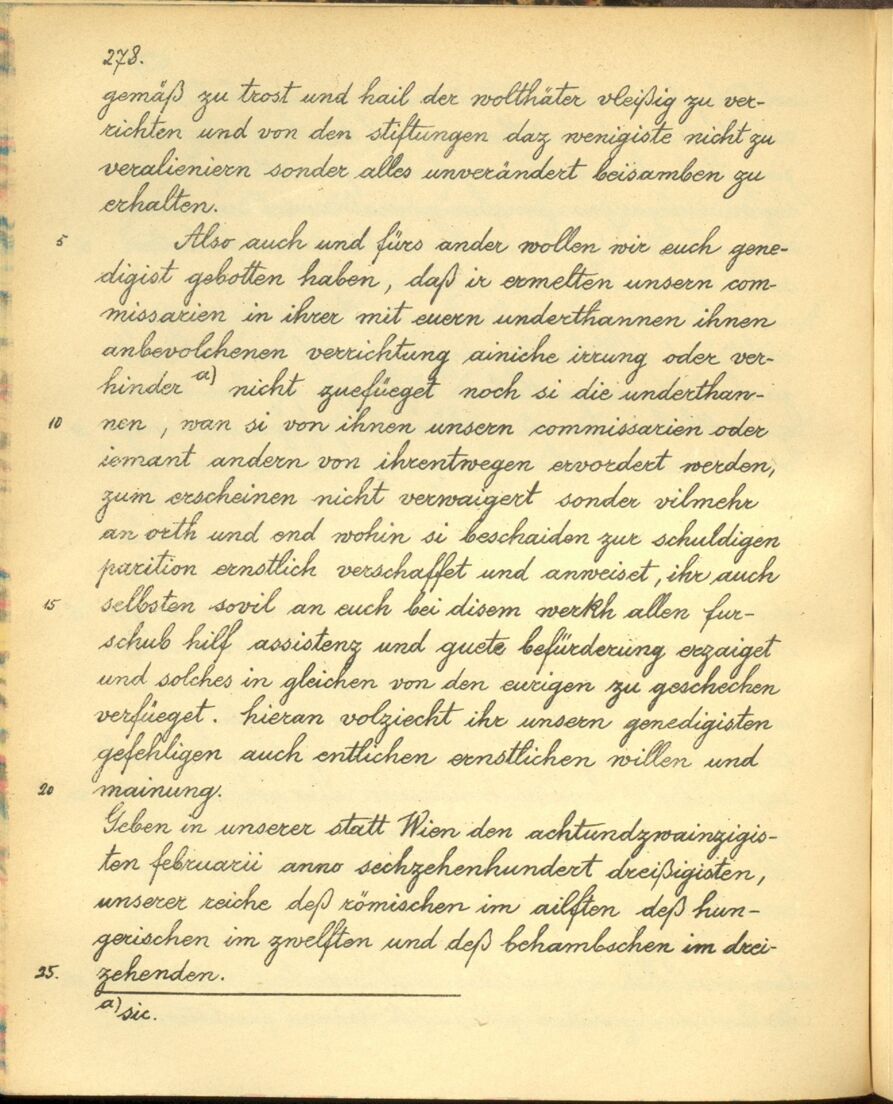 278.
gemäß zu trost und hail der wolthäter vleißig zu ver-
richten und von den stiftungen daz wenigiste nicht zu
veralieniern sonder alles unverändert beisamben zu
erhalten.
5 Also auch und fürs ander wollen wir euch gene-
digist gebotten haben, daß ir ermelten unsern com-
missarien in ihrer mit euern underthannen ihnen
anbevolchenen verrichtung ainiche irrung oder ver-
hinder a) nicht zuefüeget noch si die underthan-
10 nen, wan si von ihnen unsern commissarien oder
iemant andern von ihrentwegen ervordert werden,
zum erscheinen nicht verwaigert sonder vilmehr
an orth und end wohin si beschaiden zur schuldigen
parition ernstlich verschaffet und anweiset, ihr auch
15 selbsten sovil an euch bei disem werkh allen fur-
schub hilf assistenz und guete befürderung erzaiget
und solches in gleichen von den eurigen zu geschechen
verfüeget. hieran volziecht ihr unsern genedigisten
gefehligen auch entlichen ernstlichen willen und
20 mainung.
Geben in unserer statt Wien den achtundzwainzigis-
ten februarii anno sechzehenhundert dreißigisten,
unserer reiche deß römischen im ailften deß hun-
gerischen im zwelften und deß behambschen im drei-
25. zehenden.
a) sic.